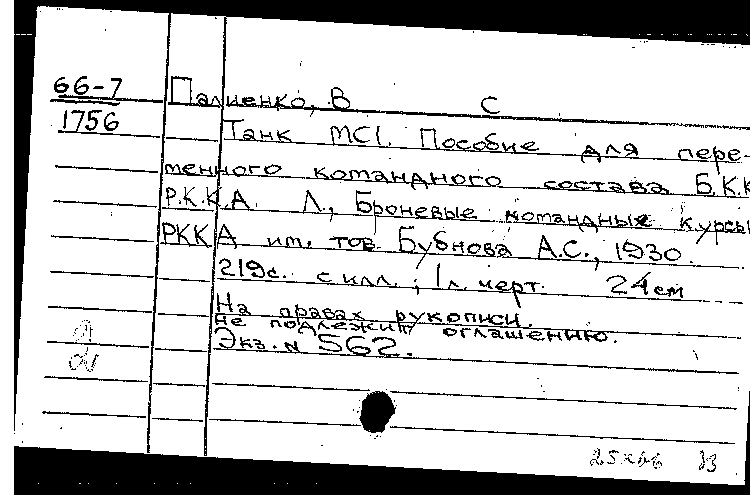 66-7
1756
Палиенко, В С
Танк МС1. Пособие для пере-
менного командного состава Б.К.К
Р.К.К.А. Л., Броневые командные курсы
РККА им. тов Бубнова А.С., 1930.
219с. с илл.; 1л. черт. 24см
На правах рукописи.
Не подлежит оглашению.
Экз. N 562.